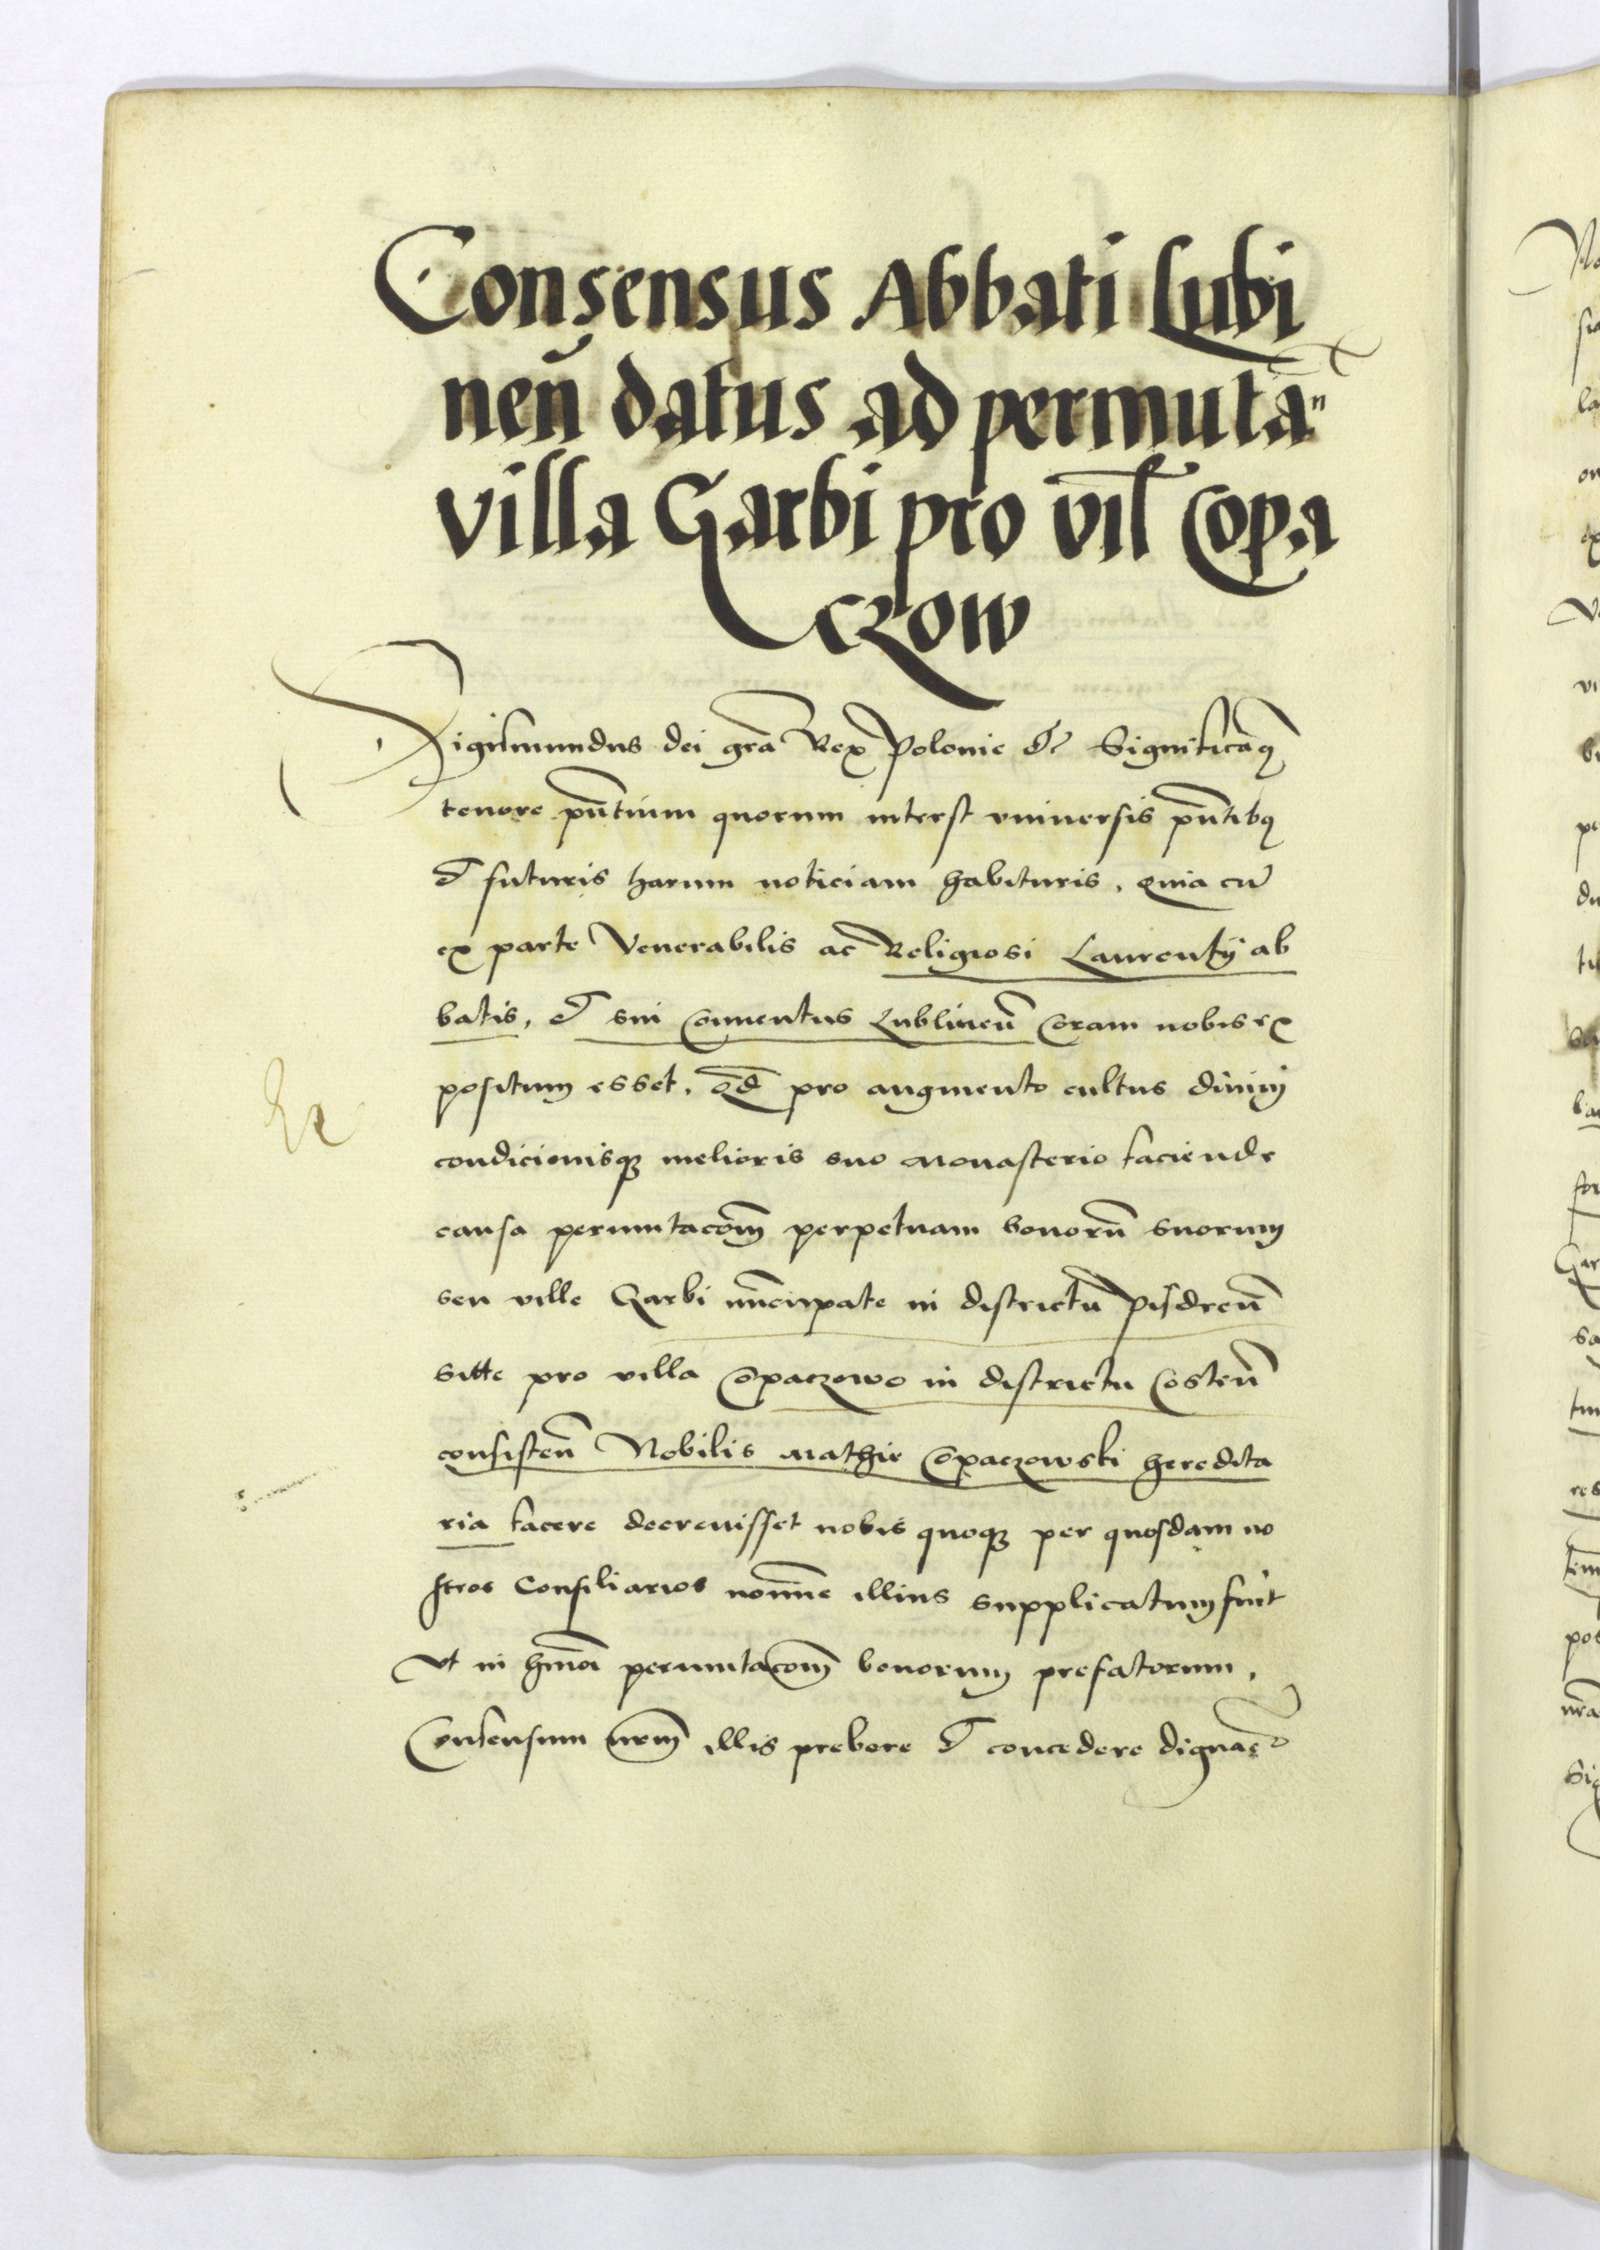 Consensus Abbati Lubi
nen̄ datus ad permutā
villa Garbi pro vil̄ Copa
czow
Sigismundus dei grā Rex Polonie &c Significamꝰ
tenore pn̄tium quorum interst vniuersis pn̄tibꝰ
& futuris harum noticiam habituris, quia cū
ex parte Venerabilis ac Religiosi Laurentÿ ab
batis, & sui Conuentus Lublinen̄ Coram nobis ex
positum esset, qd̄ pro augmento cultus diuini
condicionisqꝫ melioris suo Monasterio faciende
causa permutacōm perpetuam bonorū suorum
seu ville Garbi nūcupate in districtū Pisdren̄
sitte pro villa Copaczowo in districtu Costen̄
consisten̄ Nobilis Mathie Copaczowski heredita
ria facere decreuisset nobis quoqꝫ per quosdam no
stros Consiliarios nomīe illius supplicatum fuit
Vt in hmōi permutacōm bonorum prefatorum,
Consensum nr̄m illis prebere & concedere dignare